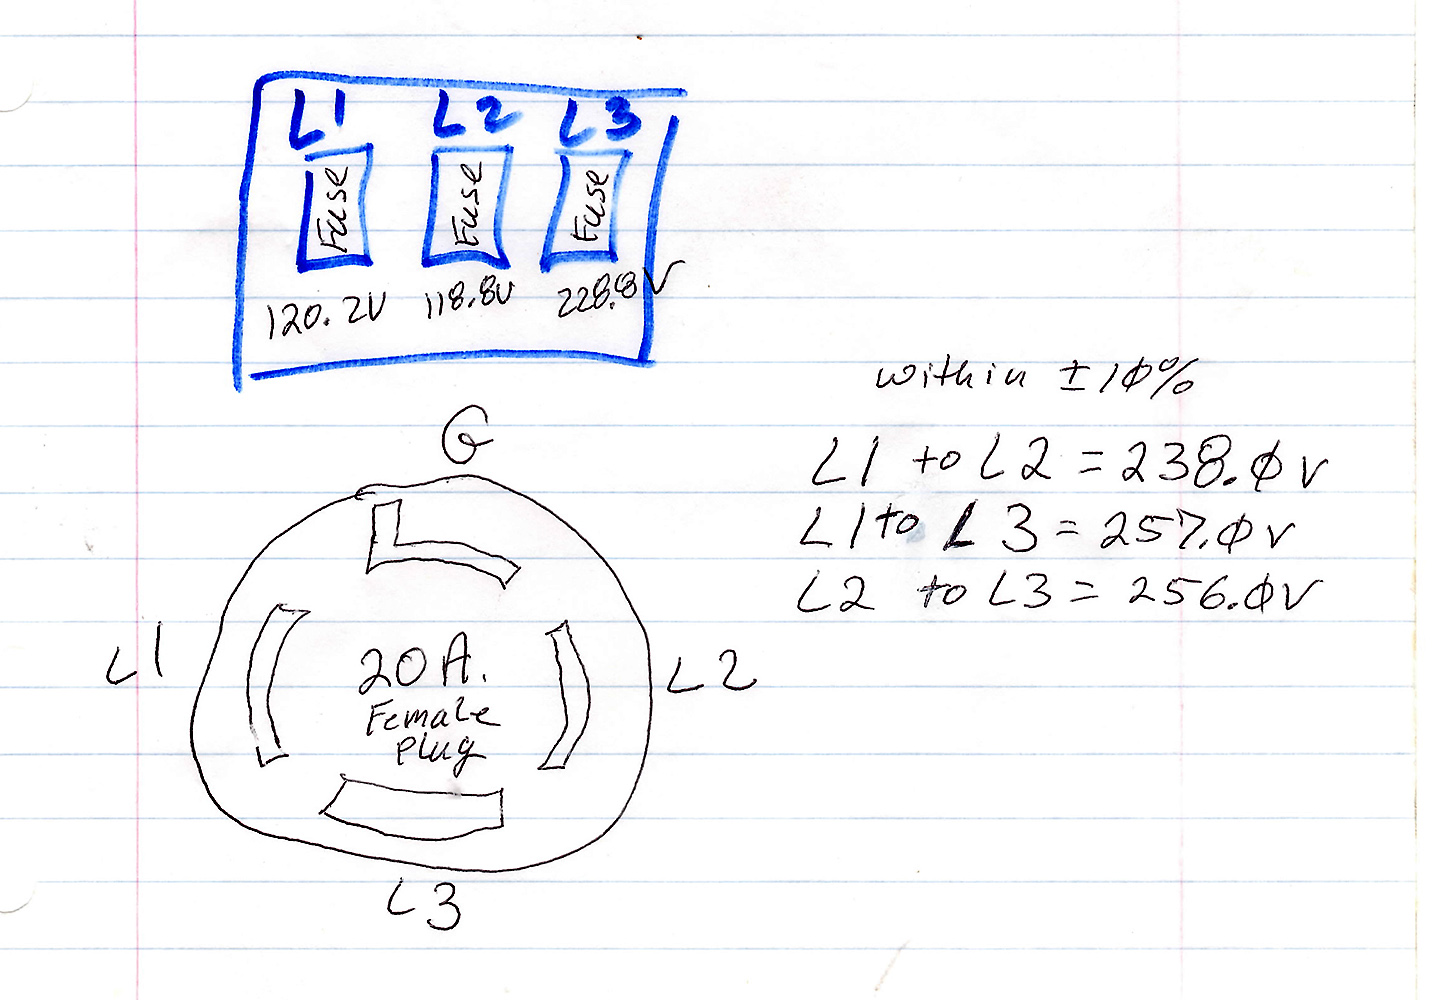 L1 L2 L3
Fuse Fuse Fuse
120.2V 118.8V 228.8V
within ±10%
G
L1 to L2 = 238.0V
L1 to L3 = 257.0V
L2 to L3 = 256.0V
L1
20A.
Female
Plug
L2
L3